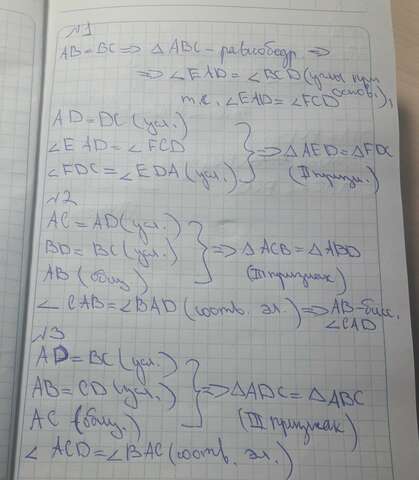 №1
AB=BC ⇒ △ABC – равнобедр ⇒
⇒ ∠EAD = ∠BCD (углы при основ.),
т.е. ∠EAD = ∠FCD
AD = DC (усл.)
∠EAD = ∠FCD
∠FDC = ∠EDA (усл.)
⇒ △AED = △FDC
(II призн.)
№2
AC = AD (усл.)
BD = BC (усл.)
AB (общ)
⇒ △ACB = △ABD
(III признак)
∠CAB = ∠BAD (соотв. эл.) ⇒ AB – бисс.
∠CAD
№3
AD = BC (усл.)
AB = CD (усл.)
AC (общ.)
⇒ △ADC = △ABC
(III признак)
∠ACD = ∠BAC (соотв. эл.)